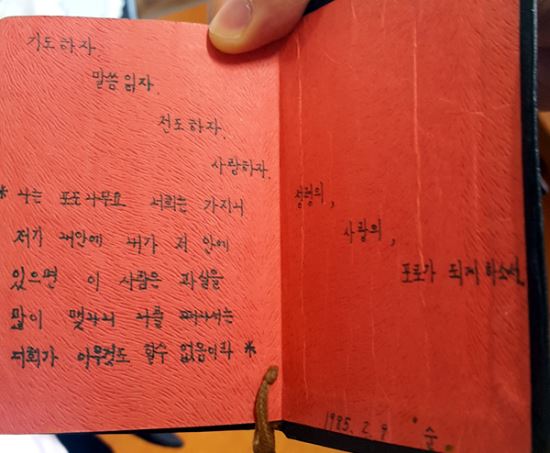 기도하자.
말씀 읽자.
전도하자.
사랑하자.
* 나는 포도나무요 너희는 가지니
저가 내안에 내가 저 안에
있으면 이 사람은 과실을
많이 맺나니 나를 떠나서는
너희가 아무것도 할수 없음이라 *
성령의,
사랑의,
포로가 되게 하소서.
1985. 2. 9 순.